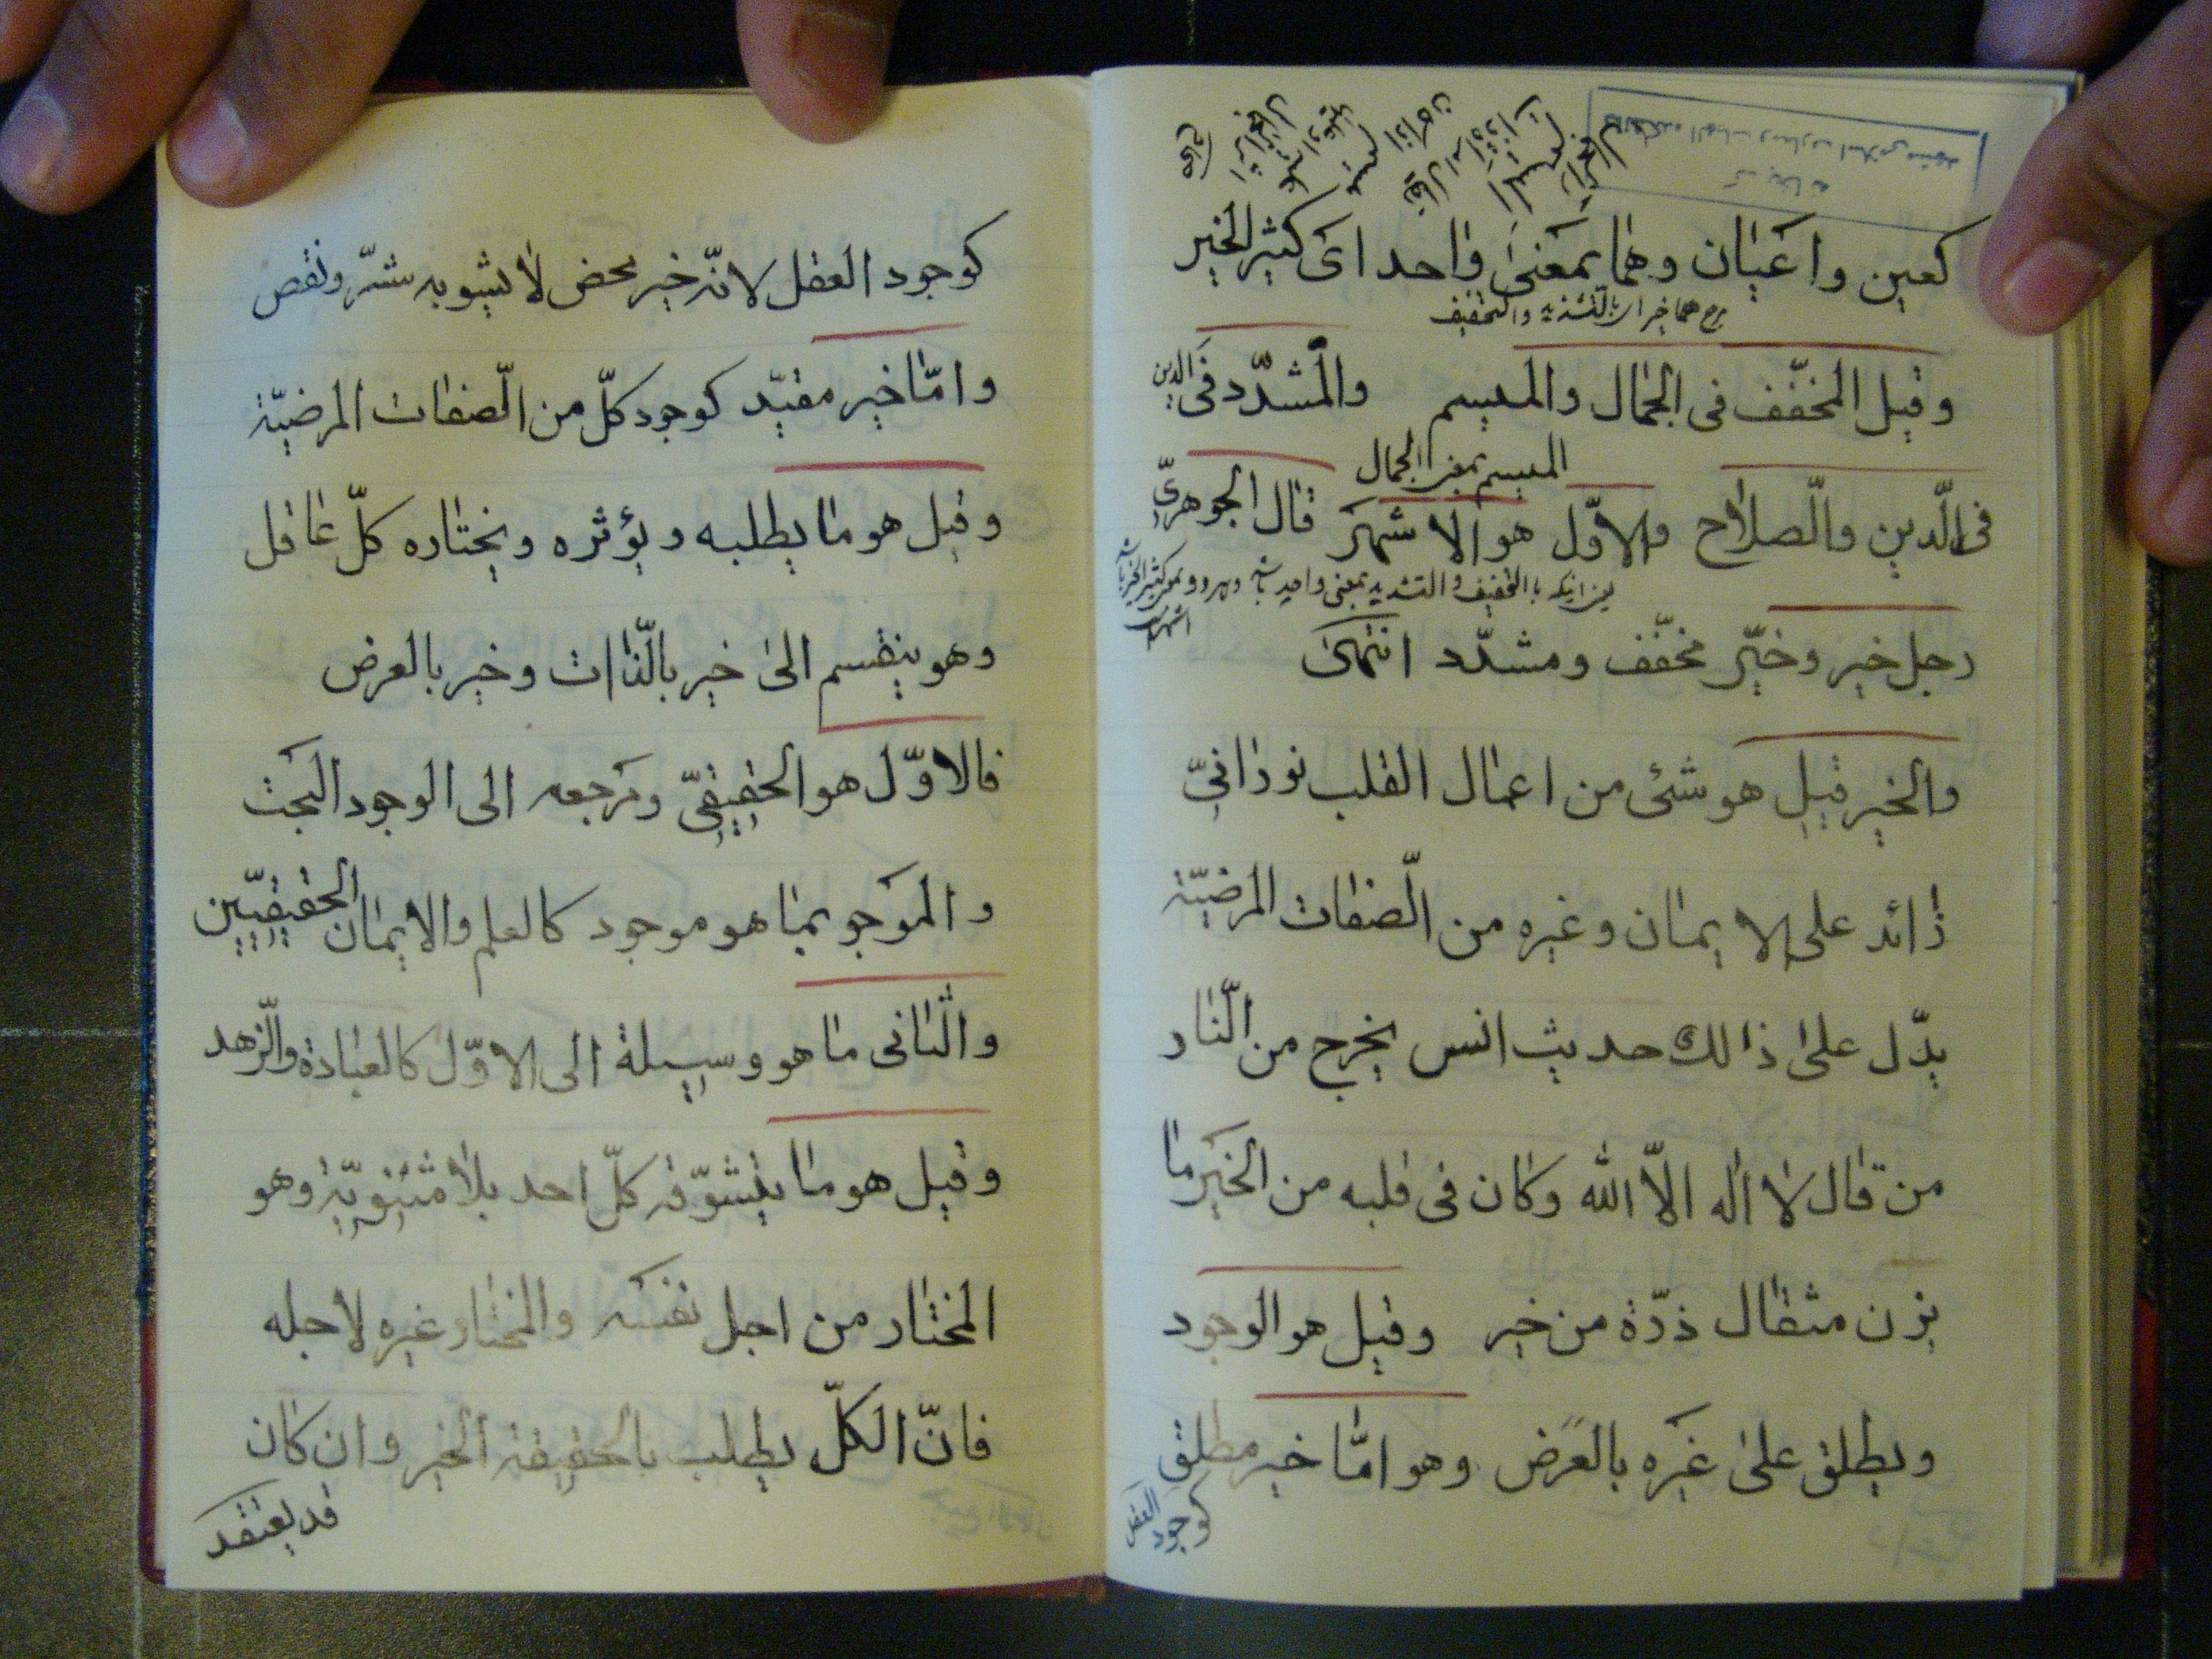 كعين واعيان وهما بمعنى واحد اى كثير الخير
وقيل المخفّف فى الجمال والميسم والمشدّد فى الدين
الميسم بمعنى الجمال
فى الدّين والصّلاح والاوّل هو الاشهر قال الجوهرىّ
رجل خير وخيّر مخفّف ومشدّد انتهى
والخير قيل هو شئ من اعمال القلب نورانىّ
زائد على الايمان وغيره من الصّفات المرضيّة
يدّل على ذالك حديث انس يخرج من النّار
من قال لا اله الّا الله وكان فى قلبه من الخير ما
يزن مثقال ذرّة من خير وقيل هو الوجود
ويطلق على غيره بالعرض وهو امّا خير مطلق
كوجود العقل
كوجود العقل لانّه خير محض لا يشوبه شرّ ونقص
وامّا خير مقيّد كوجود كلّ من الصّفات المرضيّة
وقيل هو ما يطلبه ويؤثره ويختاره كلّ عاقل
وهو ينقسم الى خير بالذّات وخير بالعرض
فالاوّل هو الحقيقىّ ومرجعه الى الوجود البحت
والموجو بما هو موجود كالعلم والايمان الحقيقيّين
والثّانى ما هو وسيلة الى الاوّل كالعبادة والزّهد
وقيل هو ما يتشوّقه كلّ احد بلا مثنويّة وهو
المختار من اجل نفسه والمختار غيره لاجله
فانّ الكلّ يطلب بالحقيقة الخير وان كان
قد يعتقد